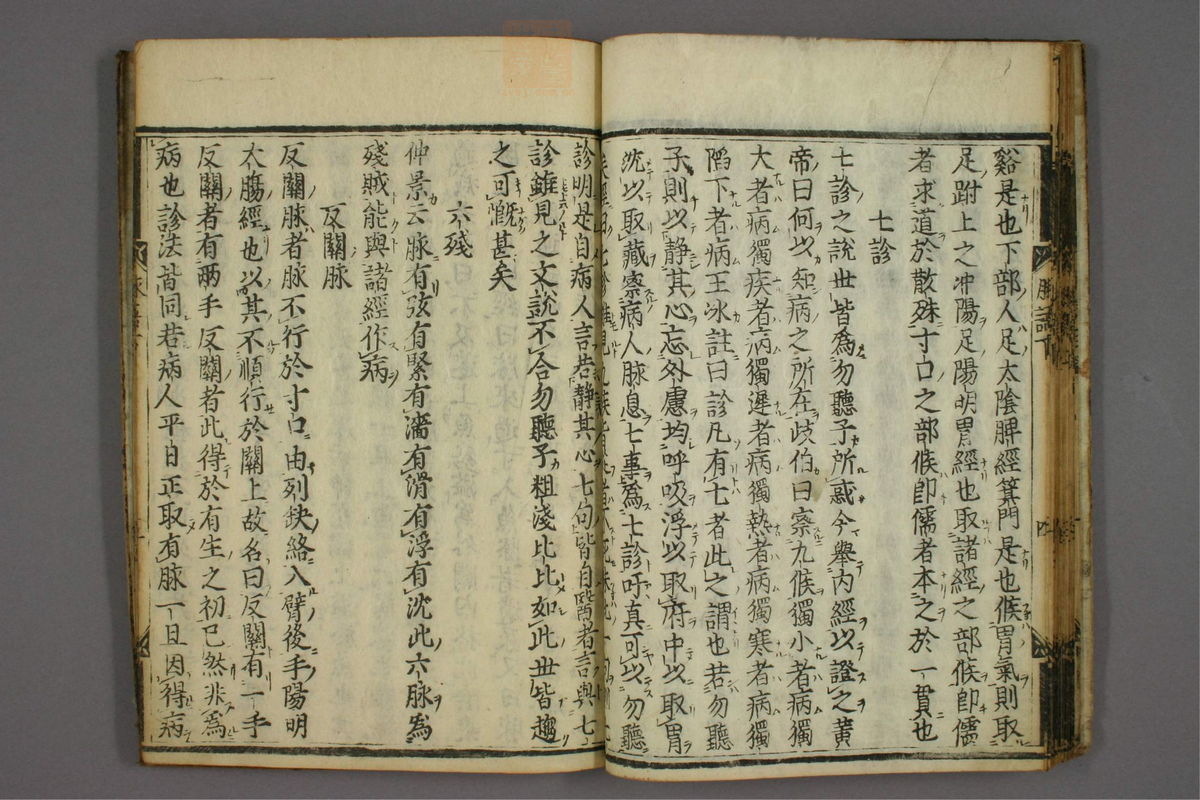 谿是也下部人足太陰脾經箕門是也候胃氣則取
足跗上之冲陽足陽明胃經也取諸經之部候卽儒
者求道於散殊寸口之部候卽儒者本之於一貫也
七診
七診之說世皆爲勿聽子所惑今舉內經以證之黃
帝曰何以知病之所在歧伯曰察九候獨小者病獨
大者病獨疾者病獨遲者病獨熱者病獨寒者病獨
陷下者病王冰註曰診凡有七者此之謂也若勿聽
子則以静其心忘外慮均呼吸浮以取府中以取胃
沈以取藏察病人脉息七事爲七診吁真可以勿聽
診明是自病人言若静其心七句皆自醫者言與七
診錐見之文說不合勿聽子粗淺比比如此世皆趨
之可慨甚矣
六殘
仲景云脉有弦有緊有濇有滑有浮有沈此六脉爲
殘賊能與諸經作病
反關脉
反關脉者脉不行於寸口由列缺絡入臂後手陽明
大腸經也以其不順行於關上故名曰反關有一手
反關者有兩手反關者此得於有生之初已然非爲
病也診法皆同若病人平日正取有脉一旦因得病
脉語下